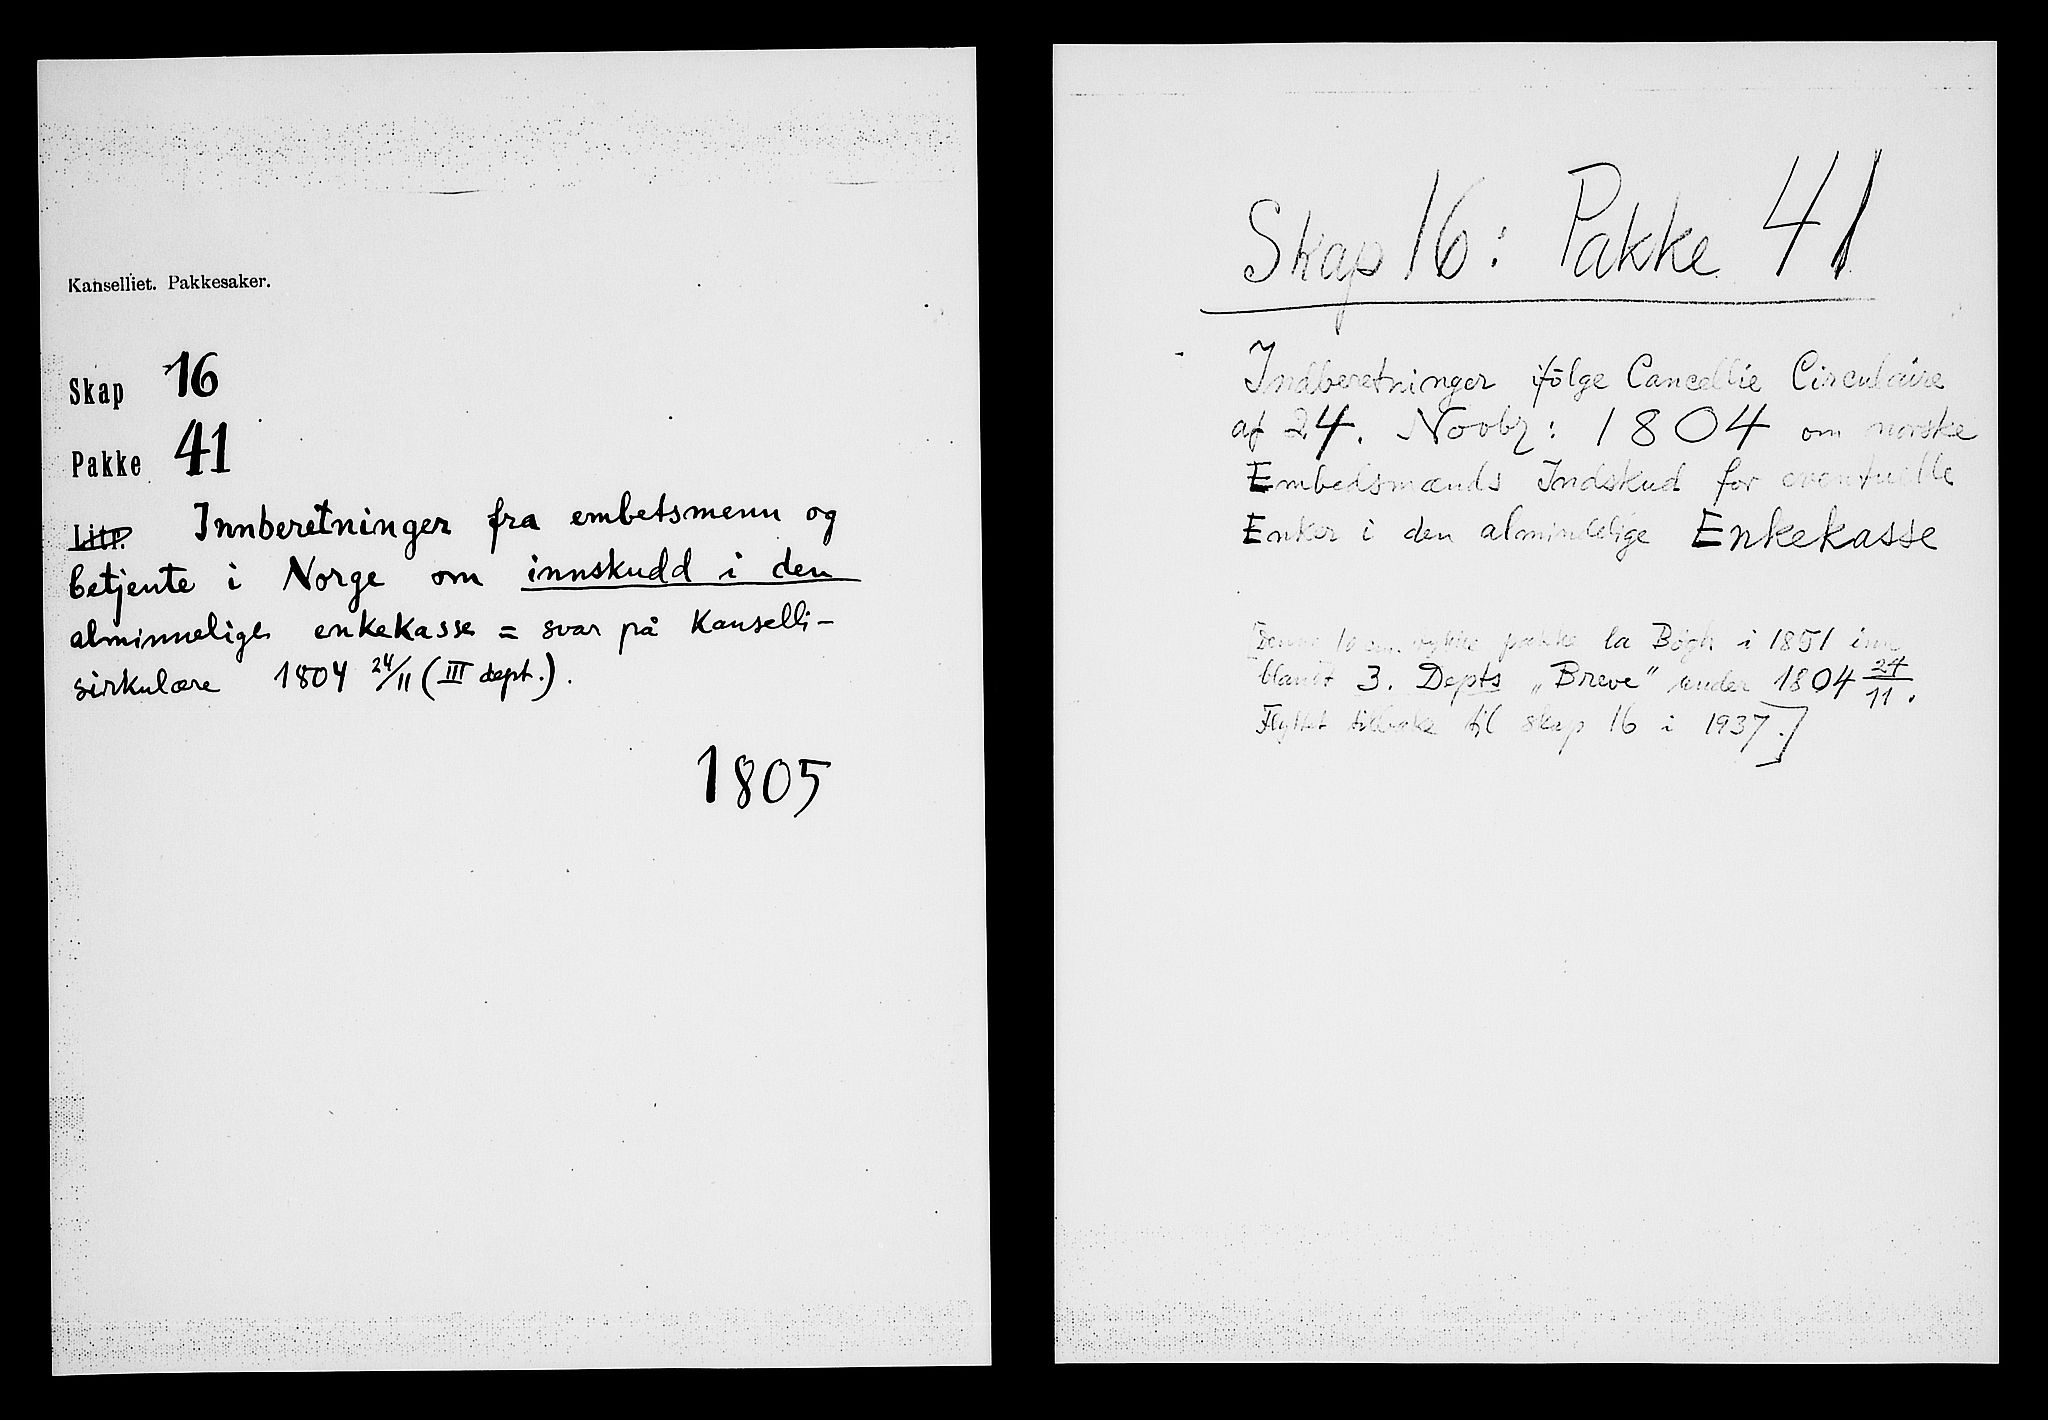 Kanselliet. Pakkesaker.
Skap 16
Pakke 41
Litr. Innberetninger fra embetsmenn og
betjente i Norge om innskudd i den
alminnelige enkekasse = svar på Kanselli-
sirkulære 1804 24/11 (III dept.).
1805
Skap 16: Pakke 41
Indberetninger ifølge Cancellie Circulaire
af 24. Novbr: 1804 om norske
Embedsmænds Indskud for eventuelle
Enker i den almindelige Enkekasse
[Denne 10 cm tykke pakke la Bøgh i 1851 inn
blandt 3. Depts „Breve" under 1804 24/11.
Flyttet tilbake til skap 16 i 1937.]